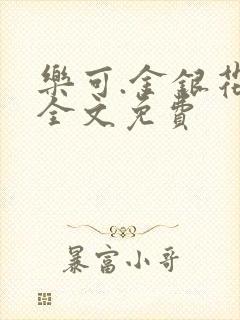 樂可.金銀花
全文免費
暴富小哥